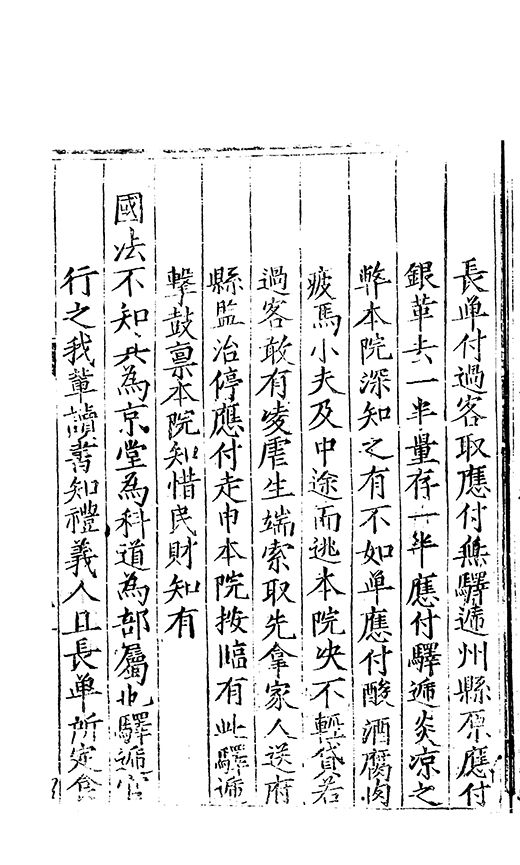 長单付過客取應付無驛遞州縣原應付
銀革去一半量存一半應付驛遞炎凉之
弊本院深知之有不如单應付酸酒腐肉
疲馬小夫及中途而逃本院决不輕貸若
過客敢有凌虐生端索取先拿家人送府
縣監治停應付走申本院按臨有此驛遞
擊鼓禀本院知惜民財知有
國法不知其為京堂為科道為部屬也驛遞官
行之我輩讀書知禮義人且長单所定食